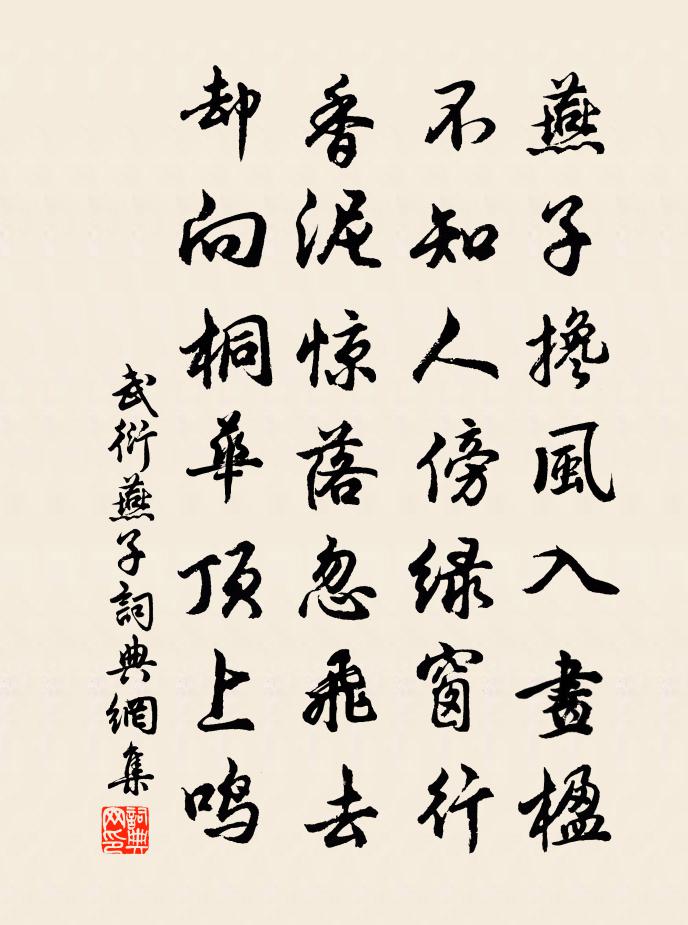 燕子搀風入畫楹
不知人傍绿窗行
香泥惊落忽飛去
却向桐華顶上鸣
武衍燕子詞典網集
詞典網印